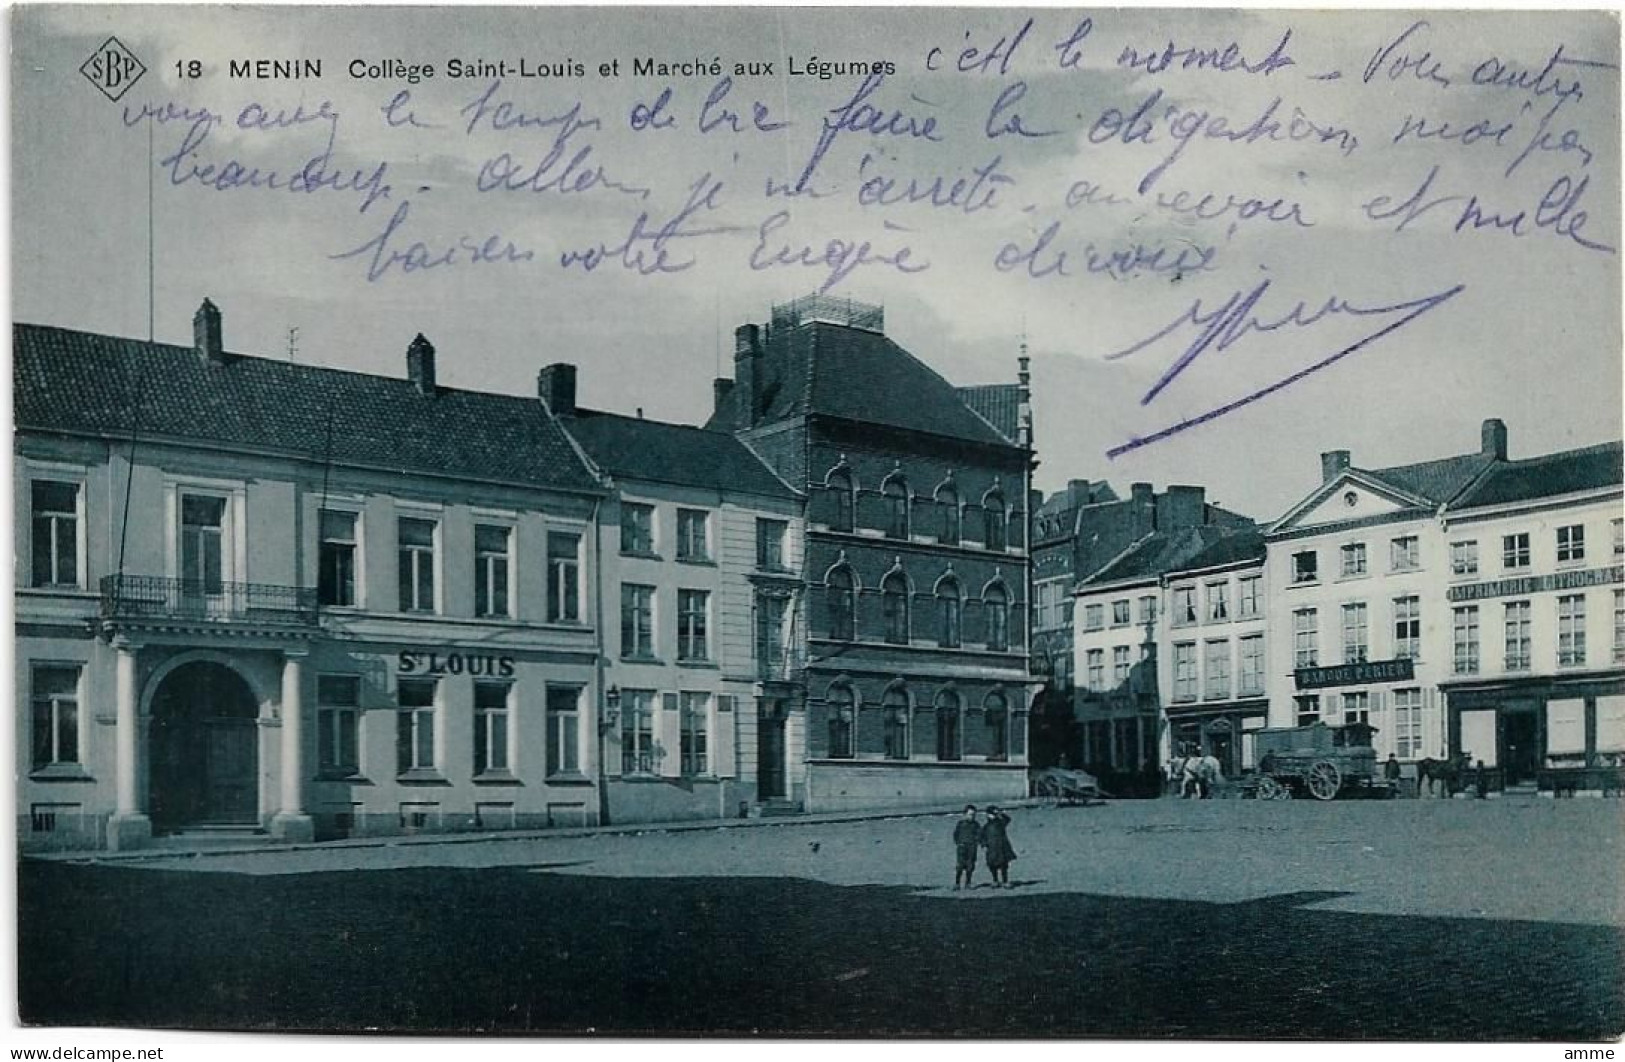 SBP
18 MENIN Collège Saint-Louis et Marché aux Légumes
c'est le moment - Vous autres
vous avez le temps de bie faire la digestion, moi pas
beaucoup. Allons, je m'arrête. au revoir et mille
baisers votre Eugène dévoué.
ST LOUIS
BANQUE PERIER
IMPRIMERIE LITHOGRAP
www.delcampe.net
amme